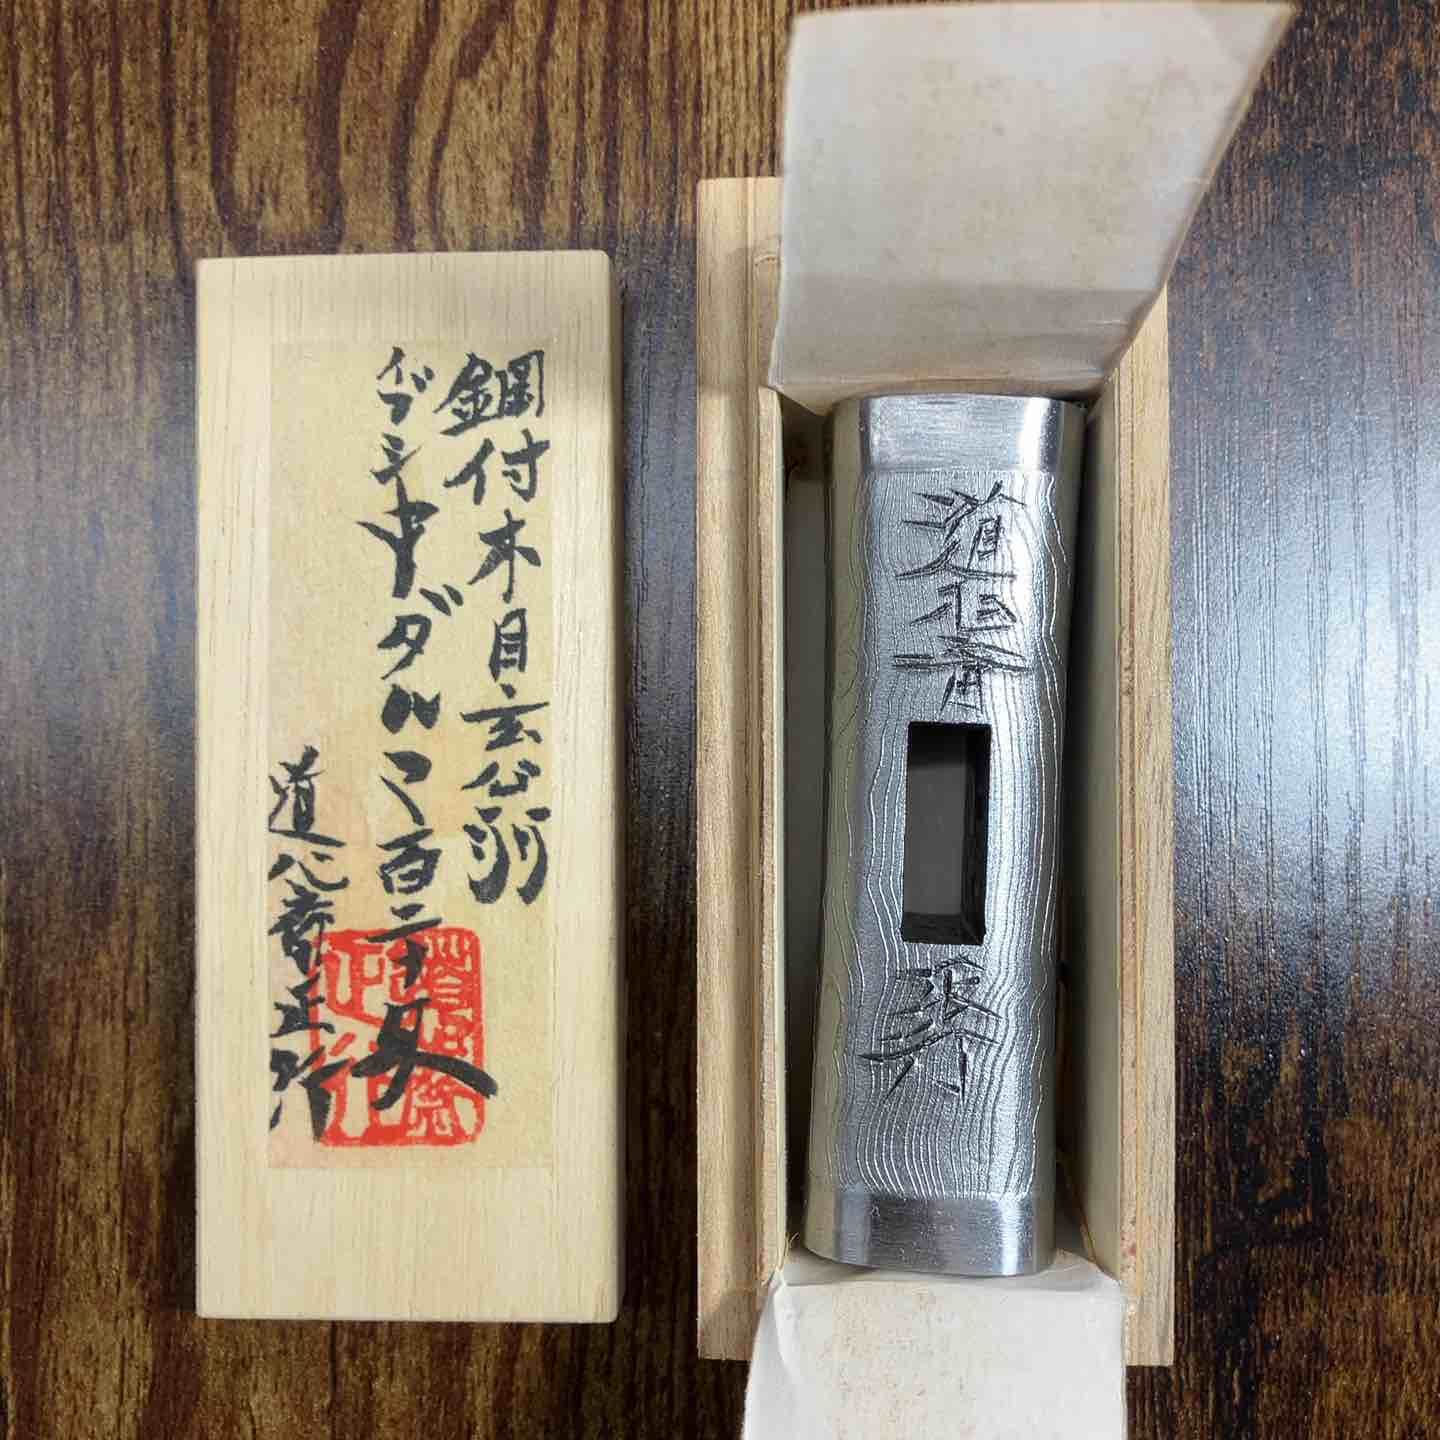 鋼付木目玄翁
イブシ中ダルマ百二十匁
道心斎正行
道心斎
正行